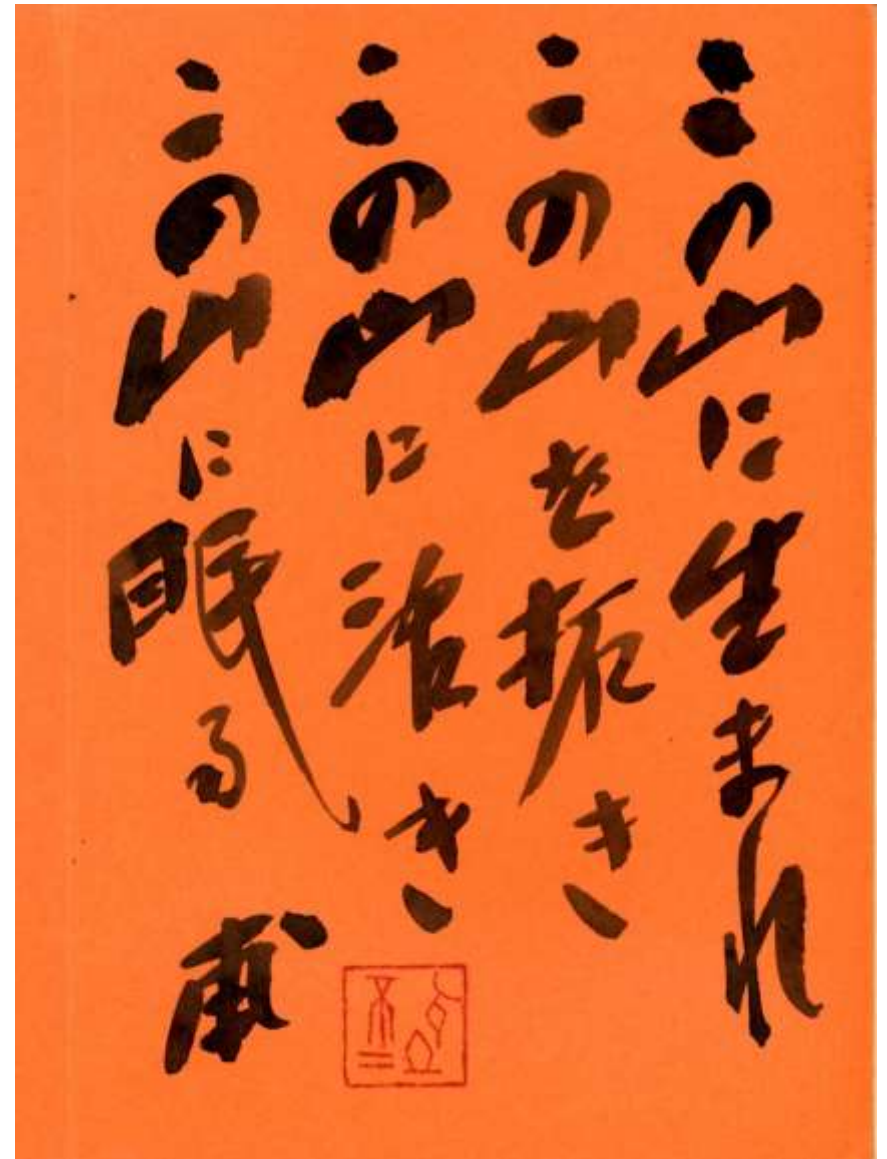 この山に生まれ
この山を拓き
この山に活き
この山に眠る 甫